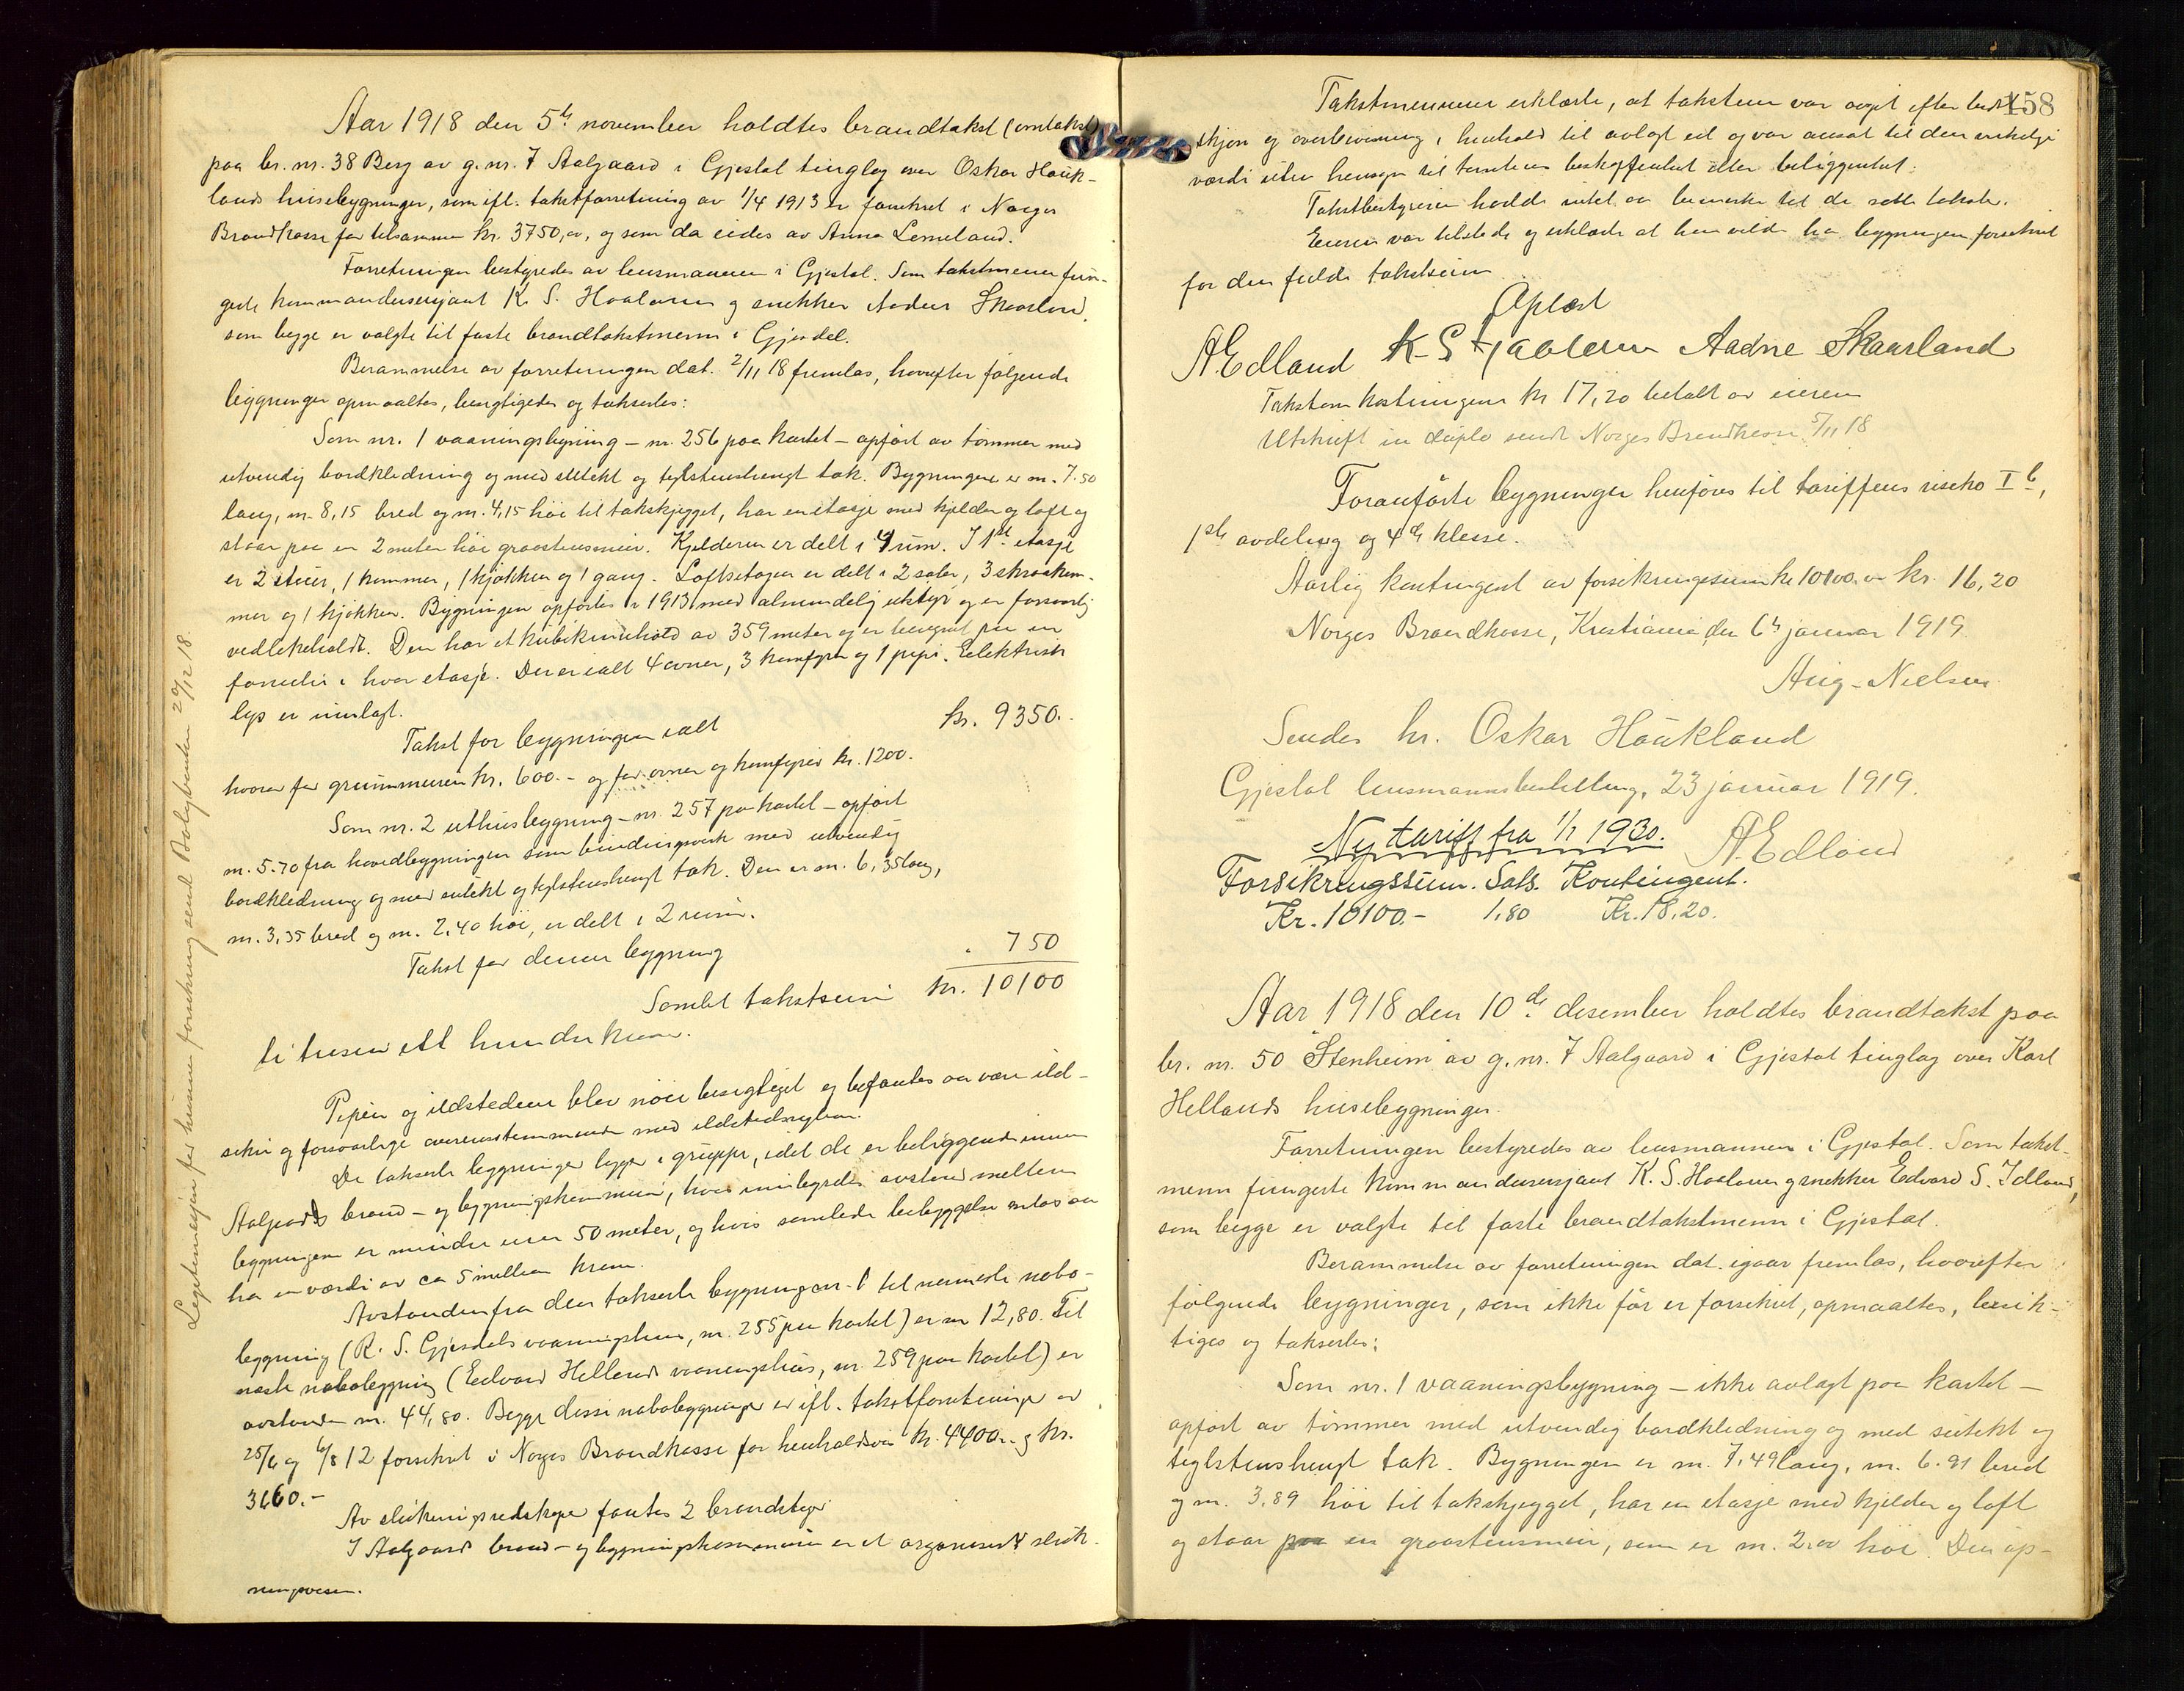 Aar 1918 den 5te november holdtes brandtakst (omtakst)
paa br. nr. 38 Berg av g. nr. 7 Aalgaard i Gjestal tinglag over Oskar Hauk-
lands husebygninger, som ifl. takstforretning av 1/4 1913 er forsikret i Norges
Brandkasse for tilsammen kr. 3750,00, og som da eiedes av Anna Lemeland.
Forretningen bestyredes av lensmannen i Gjestal. Som takstmenn fun-
gerte kommandersersjant K. S. Haaland og snekker Aadne Skaarland,
som begge er valgte til faste brandtakstmenn i Gjesdal.
Berammelse av forretningen dat. 2/11 18 fremlas, hvorefter følgende
bygninger opmaaltes, besigtigedes og taksertes:
Som nr. 1 vaaningsbygning – nr. 256 paa kartet – opført av tømmer med
utvendig bordkledning og med sutekt og teglstenshengt tak. Bygningen er m. 7.50
lang, m. 8,15 bred og m. 4,15 høi til takskjegget, har en etasje med kjelder og loft og
staar paa en 2 meter høi graastensmur. Kjelderen er delt i 4 rum. I 1ste etasje
er 2 stuer, 1 kammer, 1 kjøkken og 1 gang. Loftsetagen er delt i 2 saler, 3 skraakam-
mer og 1 kjøkken. Bygningen opførtes i 1913 med almindelig utstyr og er forsvarlig
vedlikeholdt. Den har et kubikinnhold av 359 meter og er beregnet paa en
familie i hver etasje. Der er ialt 4 ovner, 3 komfyrer og 1 pipe. Elektrisk
lys er innlagt.
Takst for bygningen ialt kr. 9350.-
hvorav for grunnmuren kr. 600.- og for ovner og komfyrer kr. 1200.
Som nr. 2 uthusbygning – nr. 257 paa kartet – opført
m. 5.70 fra hovedbygningen som bindingsverk med utvendig
bordkledning og med sutekt og teglstenshengt tak. Den er m. 6,35 lang,
m. 3,35 bred og m. 2,40 høi, er delt i 2 rum.
Takst for denne bygning " 750
Samlet takstsum kr. 10100
ti tusen ett hundre kroner.
Pipen og ildstedene blev nøie besigtiget og befantes aa være ild-
sikre og forsvarlige overensstemmende med ildstedsreglene.
De takserte bygninger ligger i gruppe, idet de er beliggende innen
Aalgaards brand- og bygningskommune, hvis innbyrdes avstand mellem
bygningene er mindre enn 50 meter, og hvis samlede bebyggelse antas aa
ha en værdi av ca 5 million kroner.
Avstanden fra den takserte bygning nr. 1 til nermeste nabo-
bygning (R. S. Gjesdals vaaningshus, nr. 255 paa kartet) er m 12,80. Til
næste nabobygning (Edvard Hellands vaaningshus, nr. 259 paa kartet) er
avstanden m. 44,80. Begge disse nabobygninger er ifl. takstforretninger av
25/6 og 6/8 12 forsikret i Norges Brandkasse for henholdsvis kr. 4400.- og kr.
3660.-
Av slukningsredskaper fantes 2 brandstiger
I Aalgaards brand- og bygningskommune er et organisert sluk-
ningsvesen.
Legitimasjon for husenes forsikring sendt Boligbanken 20/12 18.
158
Takstmennene erklærte, at taksten var avgit efter bedste
skjøn og overbevisning i henhold til avlagt ed og var ansat til den virkelige
værdi uten hensyn til tomtens beskaffenhet eller beliggenhet.
Takstbestyreren hadde intet aa bemerke til de satte takster.
Eieren var tilstede og erklærte at han vilde ha bygningen forsikret
for den fulde takstsum.
Oplæst
AEdland K. S. Haaland Aadne Skaarland
Takstomkostningene kr 17,20 betalt av eieren
Utskrift in duplo sendt Norges Brandkasse 5/11 18
Foranførte bygninger henføres til tariffens risiko I b,
1ste avdeling og 4de klasse.
Aarlig kontingent av forsikringssum kr 10100.00 kr. 16,20
Norges Brandkasse, Kristiania, den 6te januar 1919
Aug. Nielsen
Sendes hr. Oskar Haukland
Gjestal lensmannsbestilling, 23 januar 1919.
AEdland
Ny tariff fra 1/1 1930.
Forsikringssum. Sats. Kontingent.
Kr. 10100.- 1,80 Kr. 18,20.
Aar 1918 den 10de desember holdtes brandtakst paa
br. nr. 50 Stenheim av g. nr. 7 Aalgaard i Gjestal tinglag over Karl
Hellands husebygninger.
Forretningen bestyredes av lensmannen i Gjestal. Som takst-
menn fungerte kommandersersjant K. S. Haaland og snekker Edvard S. Idland,
som begge er valgte til faste brandtakstmenn i Gjestal.
Berammelse av forretningen dat. igaar fremlas, hvorefter
følgende bygninger, som ikke før er forsikret, opmaaltes, besik-
tiges og takserles:
Som nr. 1 vaaningsbygning – ikke avlagt paa kartet –
opført av tømmer med utvendig bordkledning og med sutekt og
teglstenshengt tak. Bygningen er m. 7,49 lang, m. 6.91 bred
og m. 3,89 høi til takskjegget, har en etasje med kjelder og loft
og staar paa en graastensmur, som er m. 2,00 høi. Den op-